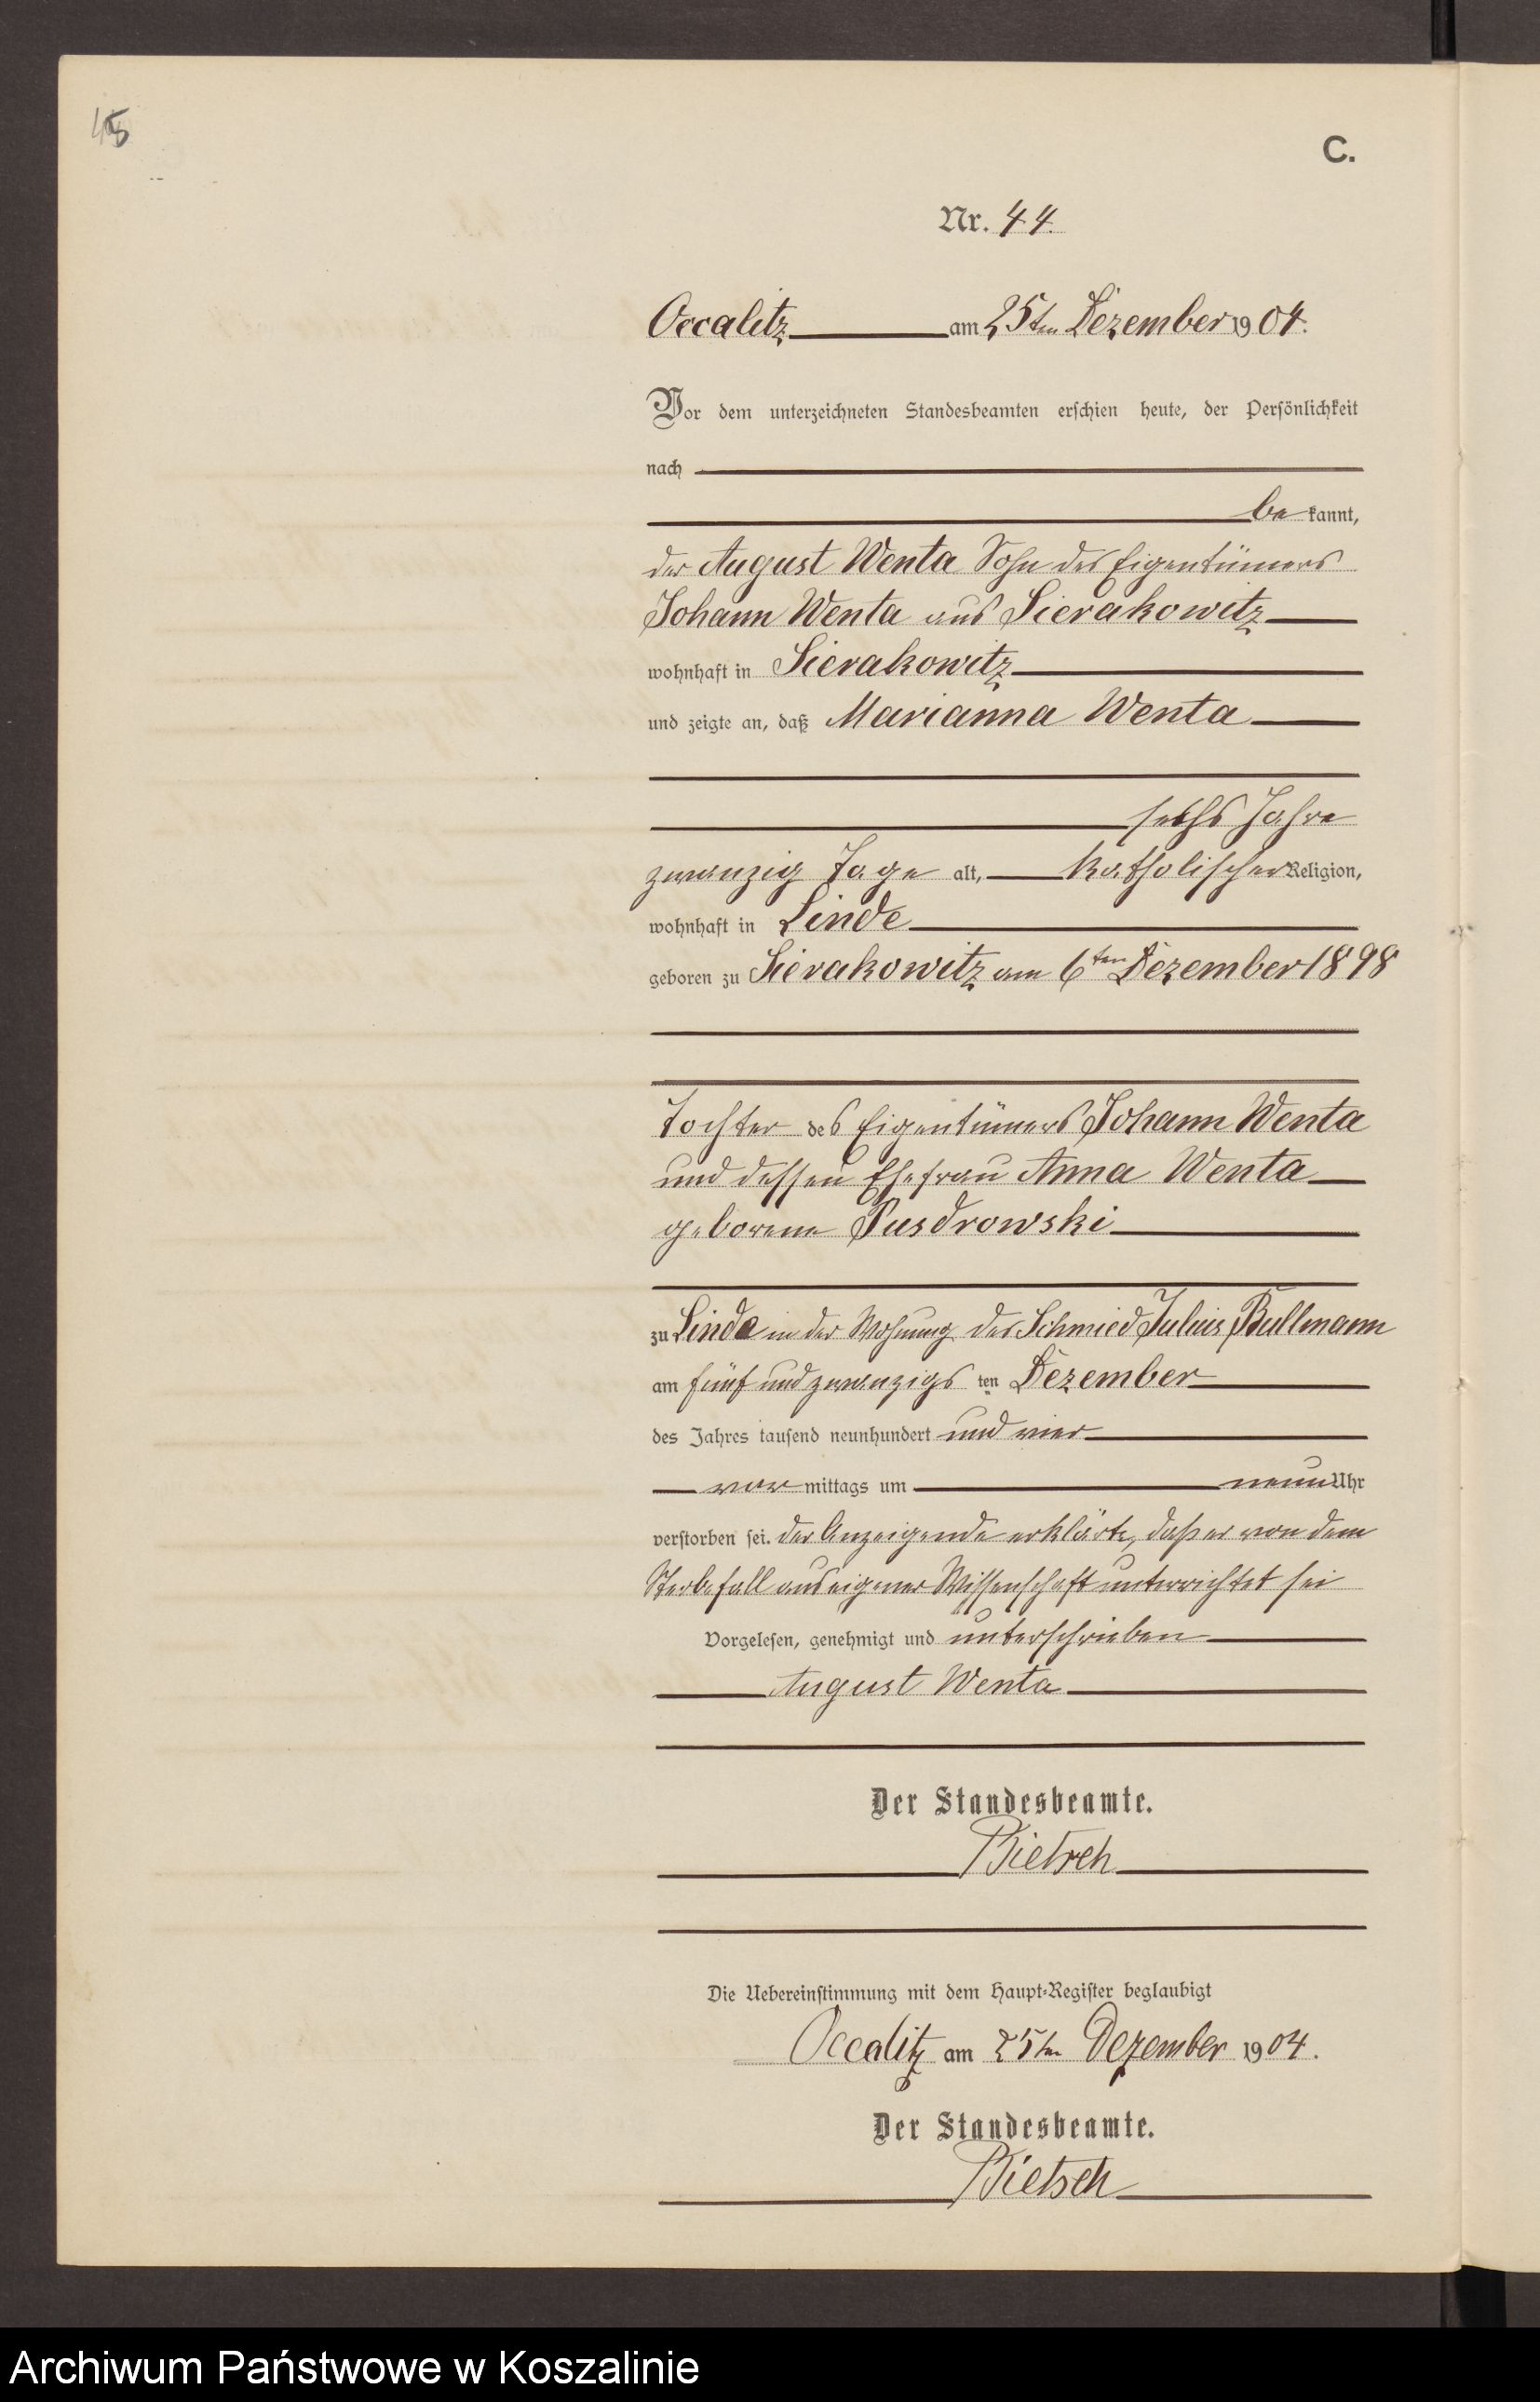 45
C.
Nr. 44.
Occalitz am 25ten Dezember 1904.
Vor dem unterzeichneten Standesbeamten erschien heute, der Persönlichkeit
nach
be kannt,
der August Wenta Sohn des Eigentümers
Johann Wenta aus Sierakowitz
wohnhaft in Sierakowitz
und zeigte an, daß Marianna Wenta
sechs Jahre
zwanzig Tage alt, katholischer Religion,
wohnhaft in Linde
geboren zu Sierakowitz am 6ten Dezember 1898
Tochter des Eigentümers Johann Wenta
und dessen Ehefrau Anna Wenta
geborene Pusdrowski
zu Linde in der Wohnung des Schmied Julius Bullmann
am fünf und zwanzigs ten Dezember
des Jahres tausend neunhundert und vier
vor mittags um neun Uhr
verstorben sei. der Anzeigende erklärte, daß er von dem
Sterbefall aus eigener Wissenschaft unterrichtet sei
Vorgelesen, genehmigt und unterschrieben
August Wenta
Der Standesbeamte.
Bietsch
Die Uebereinstimmung mit dem Haupt-Register beglaubigt
Occalitz am 25ten Dezember 1904.
Der Standesbeamte.
Bietsch
Archiwum Państwowe w Koszalinie